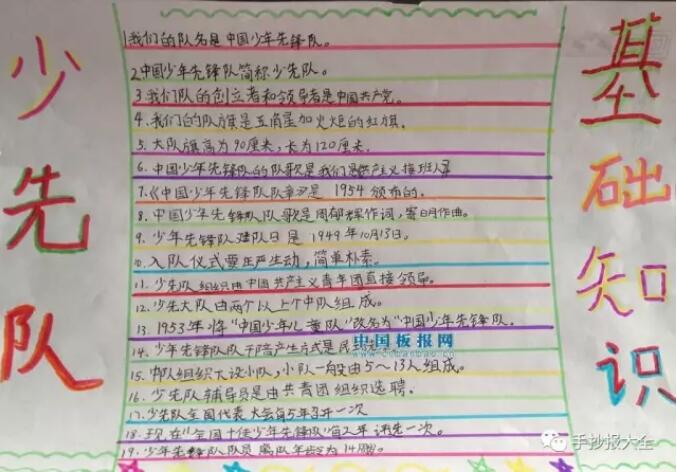 少先队
基础知识
1我们的队名是中国少年先锋队。
2.中国少年先锋队简称少先队。
3.我们队的创立者和领导者是中国共产党。
4.我们的队旗是五角星加火炬的红旗。
5.大队旗高为90厘米,长为120厘米.
6.中国少年先锋队的队歌是我们是共产主义接班人
7.《中国少年先锋队队章》是 1954 颁布的.
8.中国少年先锋队队歌是周郁辉作词,寄明作曲。
9.少年先锋队建队日是1949年10月13日。
10.入队仪式要庄严生动,简单朴素.
11.少先队组织由中国共产主义青年团直接领导.
12.少先大队由两个以上个中队组成.
13.1953年将“中国少年儿童队”改名为“中国少年先锋队.
14.少年先锋队队干部产生方式是民主
15.中队组织下设小队,小队一般由5~13人组成。
16.少先队辅导员是由共青团组织选聘.
17.少先队全国代表大会每5年召开一次
18.现在“全国十佳少年先锋队”每2年评选一次。
19.少年先锋队队员离队年龄为14周岁.
中国板报网
手抄报大全